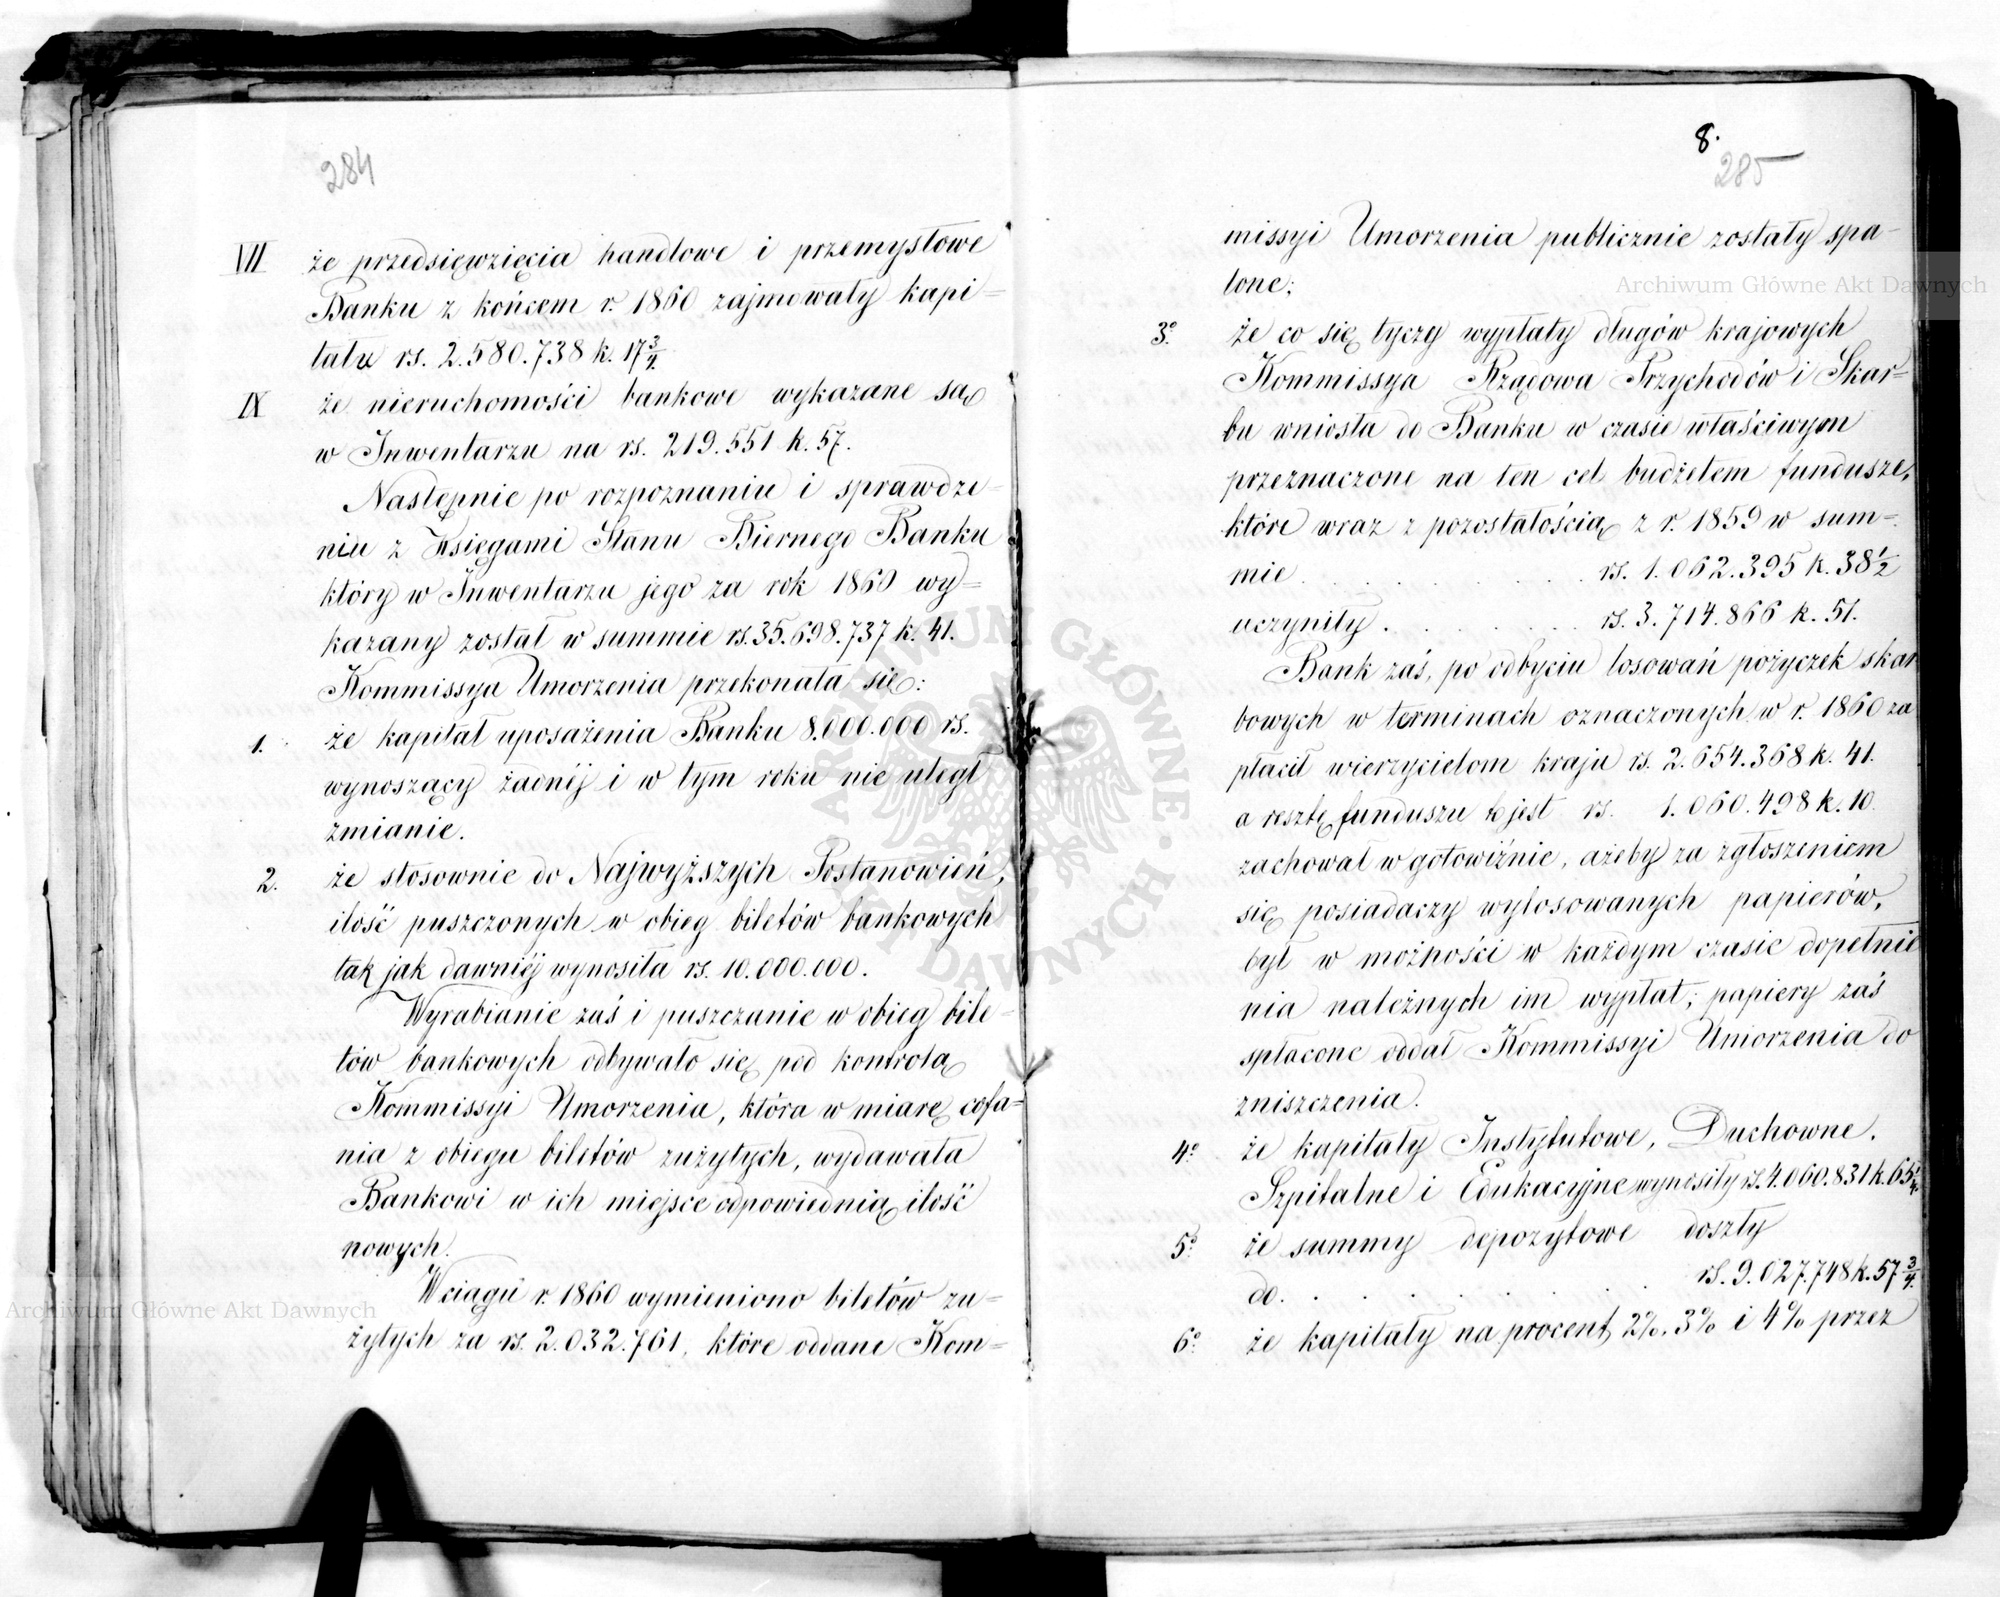 284
VII że przedsięwzięcia handlowe i przemysłowe
Banku z końcem r. 1860 zajmowały kapi=
tału rs. 2.580.738 k. 17 3/4.
IX że nieruchomości bankowe wykazane są
w Inwentarzu na rs. 219.551 k. 57.
Następnie po rozpoznaniu i sprawdze-
niu z Księgami Stanu Biernego Banku
który w Inwentarzu jego za rok 1860 wy=
kazany został w summie rs. 35.698.737 k. 41.
Kommissya Umorzenia przekonała się:
1. że kapitał uposażenia Banku 8.000.000 rs.
wynoszący żadnéj i w tym roku nie uległ
zmianie.
2. że stosownie do Najwyższych Postanowień,
ilość puszczonych w obieg biletów bankowych
tak jak dawniéj wynosiła rs. 10.000.000.
Wyrabianie zaś i puszczanie w obieg bile-
tów bankowych odbywało się pod kontrolą
Kommissyi Umorzenia, która w miarę cofa=
nia z obiegu biletów zużytych, wydawała
Bankowi w ich miejsce odpowiednią ilość
nowych.
W ciągu r. 1860 wymieniono biletów zu=
żytych za rs. 2.032.761, które oddane Kom=
8.
285
missyi Umorzenia publicznie zostały spa-
lone;
3º że co się tyczy wypłaty długów krajowych
Kommissya Rządowa Przychodów i Skar=
bu wniosła do Banku w czasie właściwym
przeznaczone na ten cel budżetem fundusze,
które wraz z pozostałością z r. 1859 w sum=
mie . . . . . . . . rs. 1.062.395 k. 38 1/2
uczyniły . . . . . . rs. 3.714.866 k. 51.
Bank zaś, po odbyciu losowań pożyczek skar
bowych w terminach oznaczonych w r. 1860 za
płacił wierzycielom kraju rs. 2.654.368 k. 41.
a resztę funduszu to jest rs. 1.060.498 k. 10.
zachował w gotowiźnie, ażeby za zgłoszeniem
się posiadaczy wylosowanych papierów,
był w możności w każdym czasie dopełnie
nia należnych im wypłat; papiery zaś
spłacone oddał Kommissyi Umorzenia do
zniszczenia.
4º że kapitały Instytutowe, Duchowne,
Szpitalne i Edukacyjne wynosiły rs. 4.060.831 k. 65 1/4.
5º że summy depozytowe doszły
do . . . . . . . rs. 9.027.748 k. 57 3/4.
6º że kapitały na procent 2%, 3% i 4% przez
Archiwum Główne Akt Dawnych
Archiwum Główne Akt Dawnych
ARCHIWUM GŁÓWNE AKT DAWNYCH